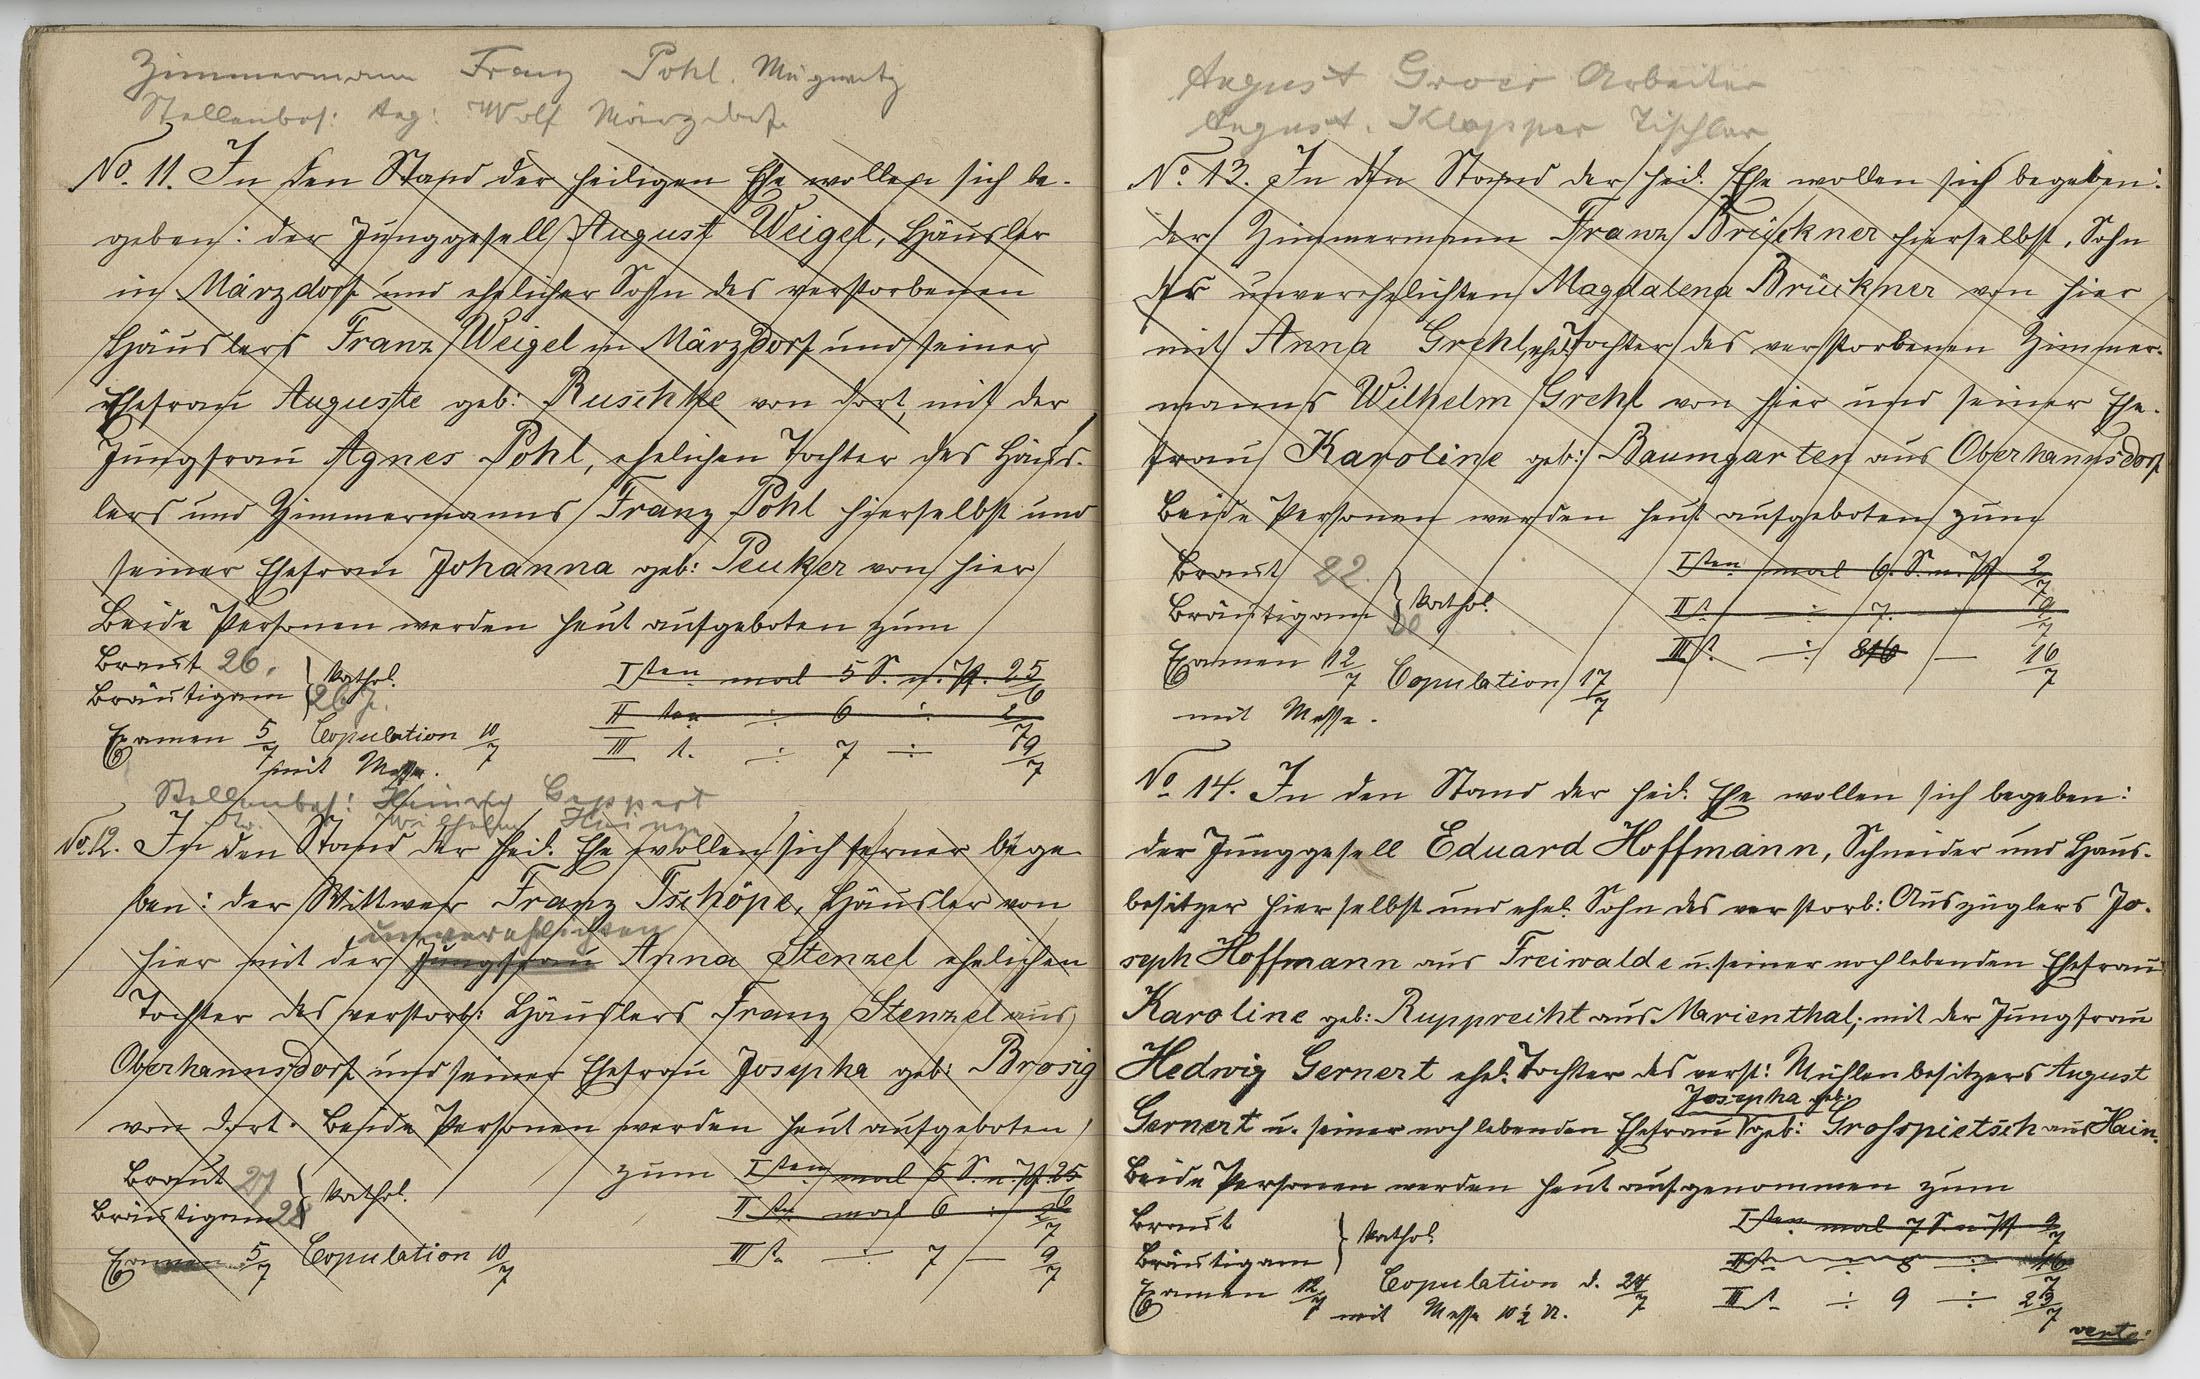 Zimmermann Franz Pohl. Mügwitz
Stellenbes: Aug: Wolf Märzdorf
No. 11. In den Stand der heiligen Ehe wollen sich be-
geben: der Junggesell August Weigel, Häusler
in Märzdorf und ehelicher Sohn des verstorbenen
Häuslers Franz Weigel in Märzdorf und seiner
Ehefrau Auguste geb: Ruschke von dort, mit der
Jungfrau Agnes Pohl, ehelichen Tochter des Häus-
lers und Zimmermanns Franz Pohl hierselbst und
seiner Ehefrau Johanna geb: Peuker von hier
Beide Personen werden heut aufgeboten zum
Braut 26. } kathol. Iten mal 5 S. n. Pf. 25/6
Bräutigam 26 J. II ten ÷ 6 ÷ 2/7
Examen 5/7 Copulation 10/7 III t. ÷ 7 ÷ 9/7
mit Messe.
Stellenbes: Heinrich Geppert
do. Wilhelm Heinze
No. 12. In den Stand der heil. Ehe wollen sich ferner bege-
ben: der Wittwer Franz Tschöpe, Häusler von
unverehlichten
hier mit der Jungfrau Anna Stenzel ehelichen
Tochter des verstorb: Häuslers Franz Stenzel aus
Oberhannsdorf und seiner Ehefrau Josepha geb: Brosig
von dort. Beide Personen werden heut aufgeboten
zum Iten mal 5 S. n. Pf. 25/6
Braut 27 } kathol.
Bräutigam 28 II ten mal 6 ÷ 2/7
Examen 5/7 Copulation 10/7 III t. ÷ 7 — 9/7
August Groer Arbeiter
August. Klapper Tischler
No. 13. In den Stand der heil. Ehe wollen sich begeben:
der Zimmermann Franz Brückner hierselbst, Sohn
der unverehelichten Magdalena Brückner von hier
mit Anna Grehl, ehel. Tochter des verstorbenen Zimmer-
manns Wilhelm Grehl von hier und seiner Ehe-
frau Karoline geb: Baumgarten aus Oberhannsdorf
Beide Personen werden heut aufgeboten zum
Braut 22. } kathol. Iten mal 6. S. n. Pf. 2/7
Bräutigam 30 II t. ÷ 7. ÷ 9/7
Examen 12/7 Copulation 17/7 III t. ÷ 8 — 16/7
mit Messe.
No 14. In den Stand der heil. Ehe wollen sich begeben:
der Junggesell Eduard Hoffmann, Schneider und Haus-
besitzer hierselbst und ehel. Sohn des verstorb: Auszüglers Jo-
seph Hoffmann aus Freiwalde u. seiner noch lebenden Ehefrau
Karoline geb: Rupprecht aus Marienthal, mit der Jungfrau
Hedwig Gernert ehel. Tochter des verst: Mühlenbesitzers August
Josepha geb:
Gernert u. seiner noch lebenden Ehefrau geb: Grosspietsch aus Hain.
Beide Personen werden heut aufgenommen zum
Braut } kathol. Iten mal 7 S. n. Pf. 9/7
Bräutigam II t. ÷ 8 ÷ 16/7
Examen 12/7 Copulation d. 24/7 III t. ÷ 9 ÷ 23/7
mit Messe 10 ½ U.
verte: